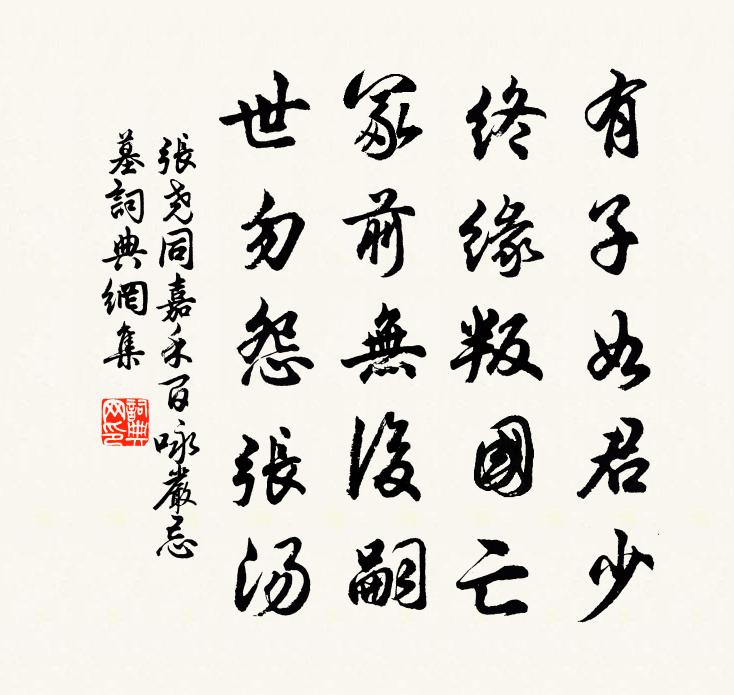 有子如君少
終緣叛國亡
冢前無後嗣
世勿怨張湯
張堯同嘉禾百咏嚴忌
墓詞典網集
詞典網印